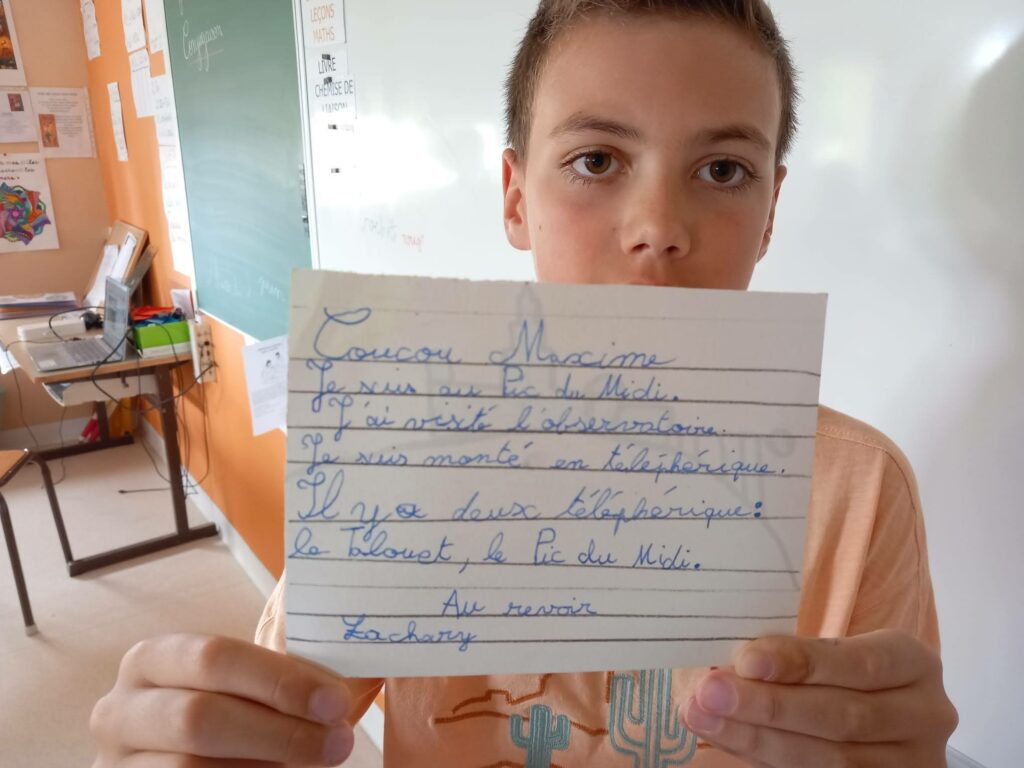 Conjugaison
LEÇONS
MATHS
LIVRE
CHEMISE DE
LIAISON
Coucou Maxime
Je suis au Pic du Midi.
J'ai visité l'observatoire.
Je suis monté en téléphérique.
Il y a deux téléphérique:
le Talouet, le Pic du Midi.
Au revoir
Zachary